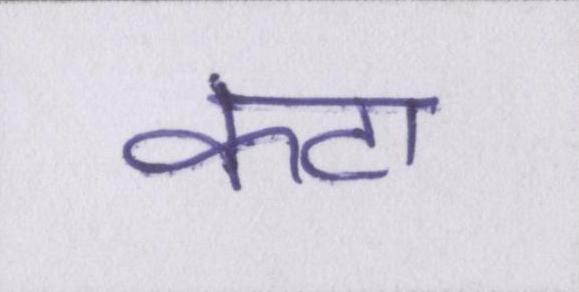 कटा